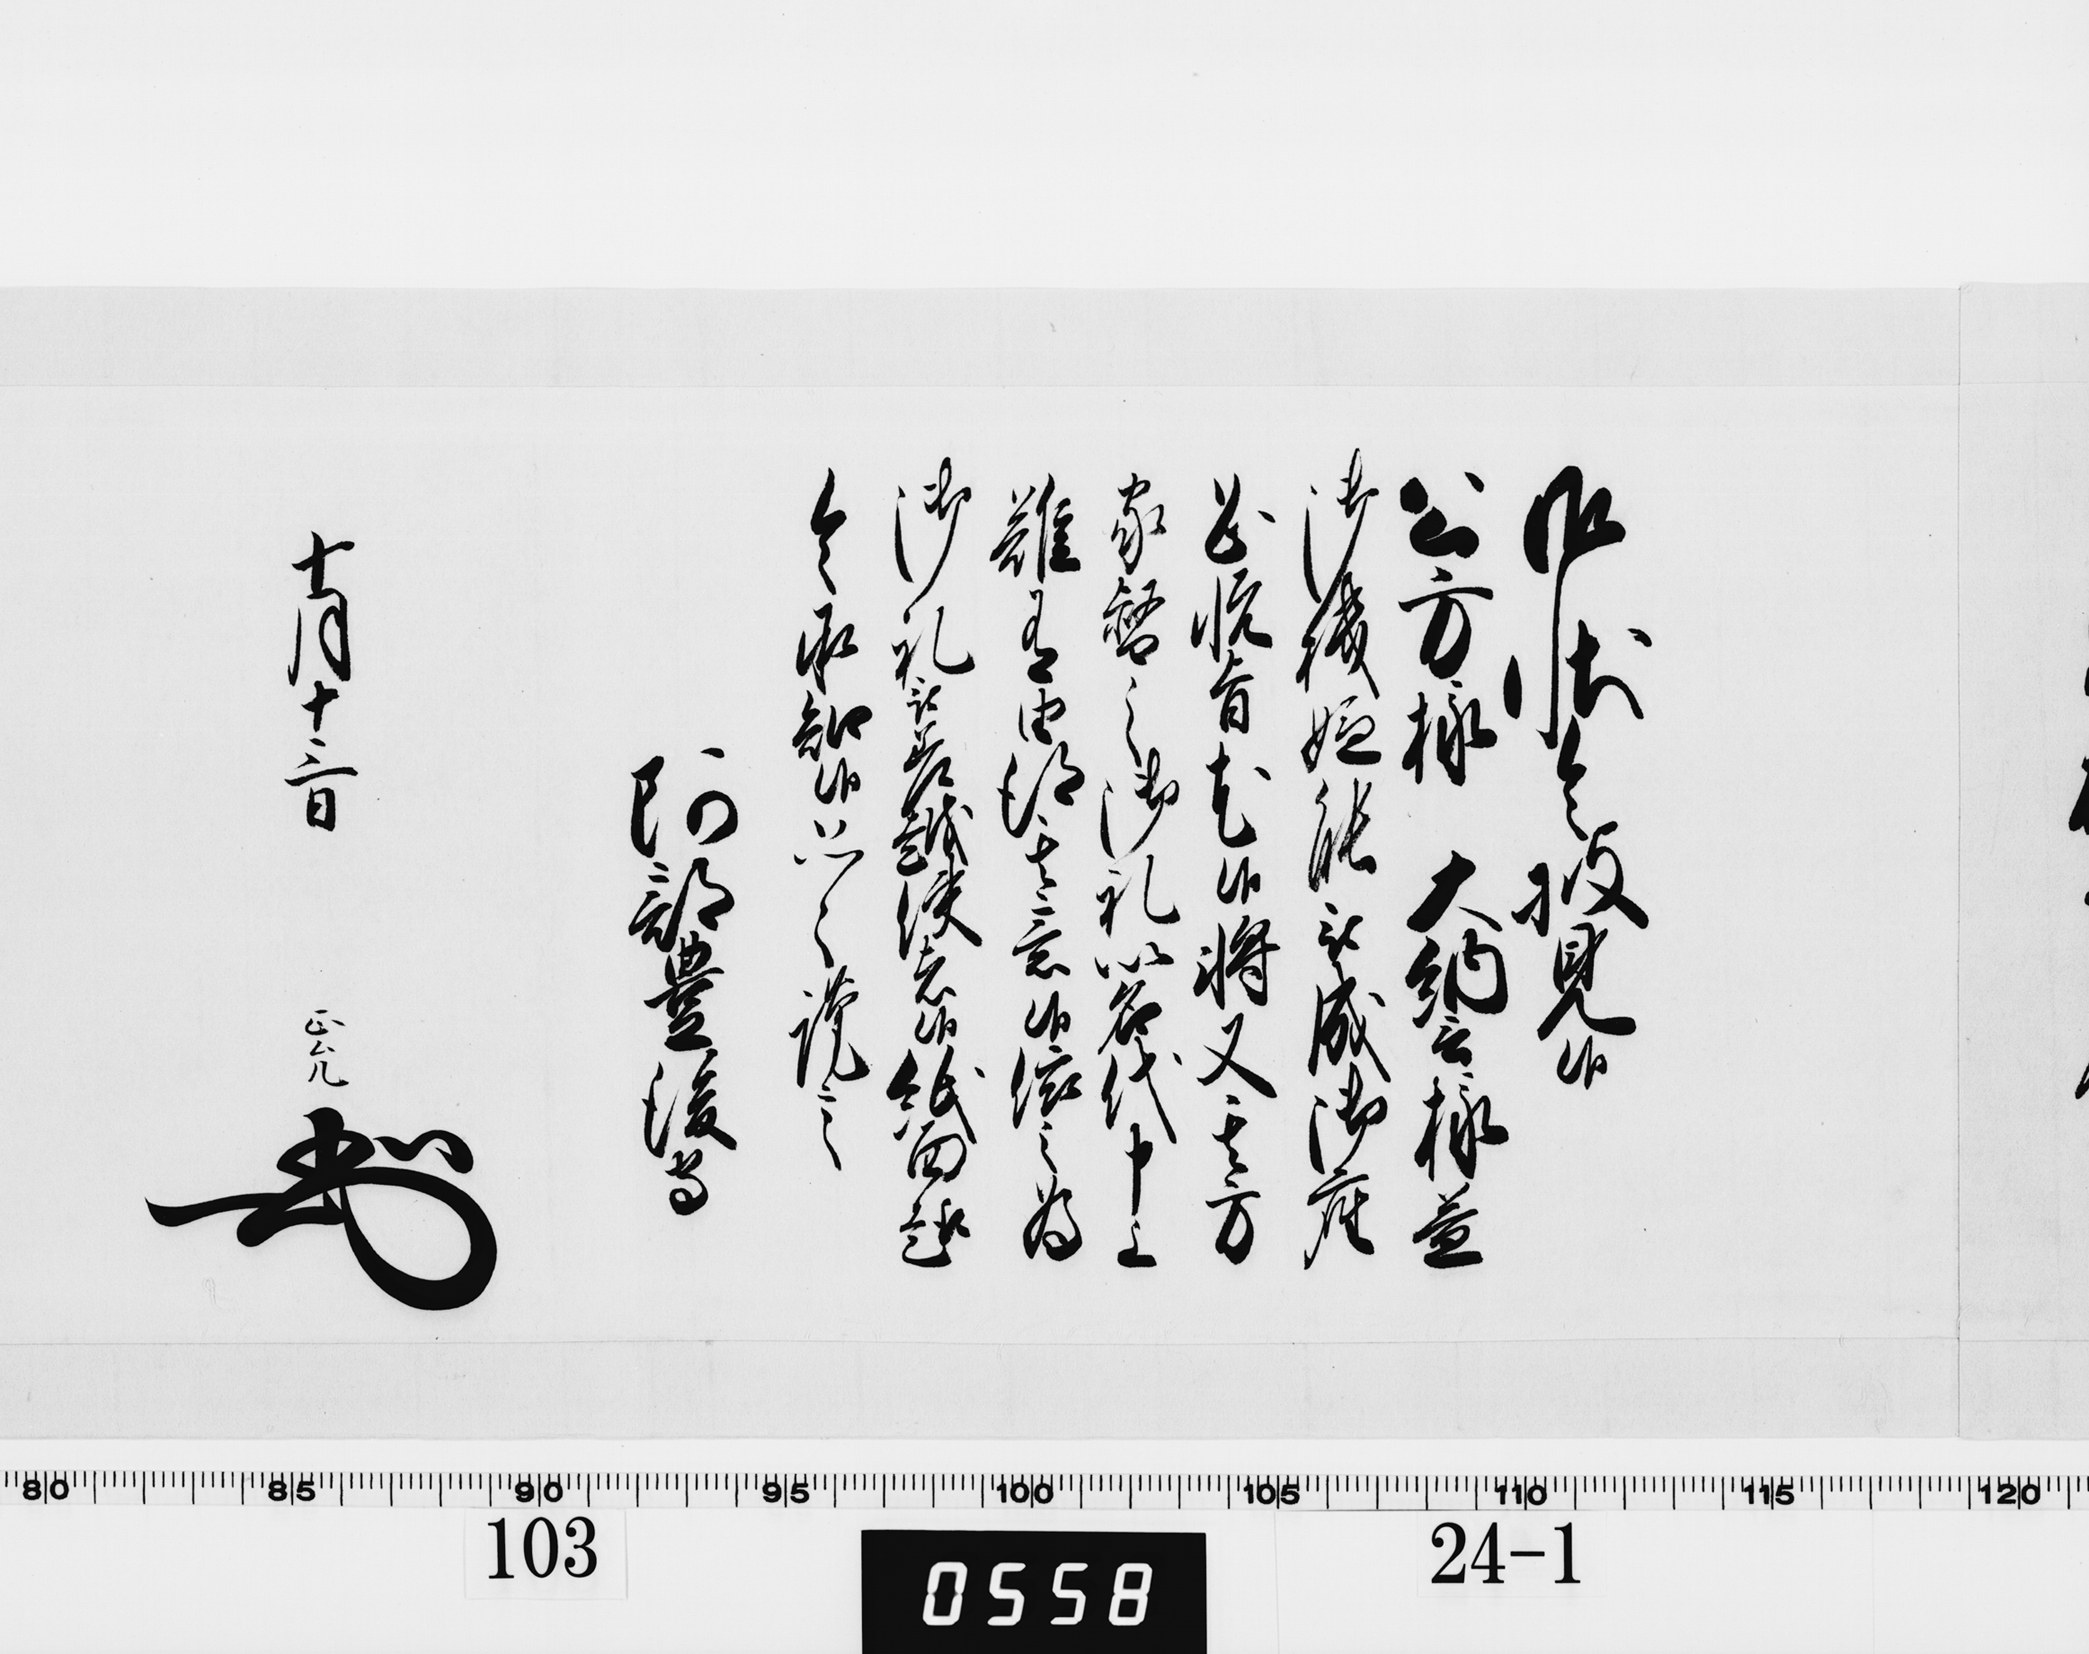 御状令披見候
公方様 大納言様益
御機嫌能被成御座
恐悦旨尤候将又其方
家督之御礼以名代申上
難有由得其意候依之為
御礼被差越使者候紙面趣
令承知候恐々謹言
阿部豊後守
十月十三日 正允
103
0558
24-1
80 85 90 95 100 105 110 115 120